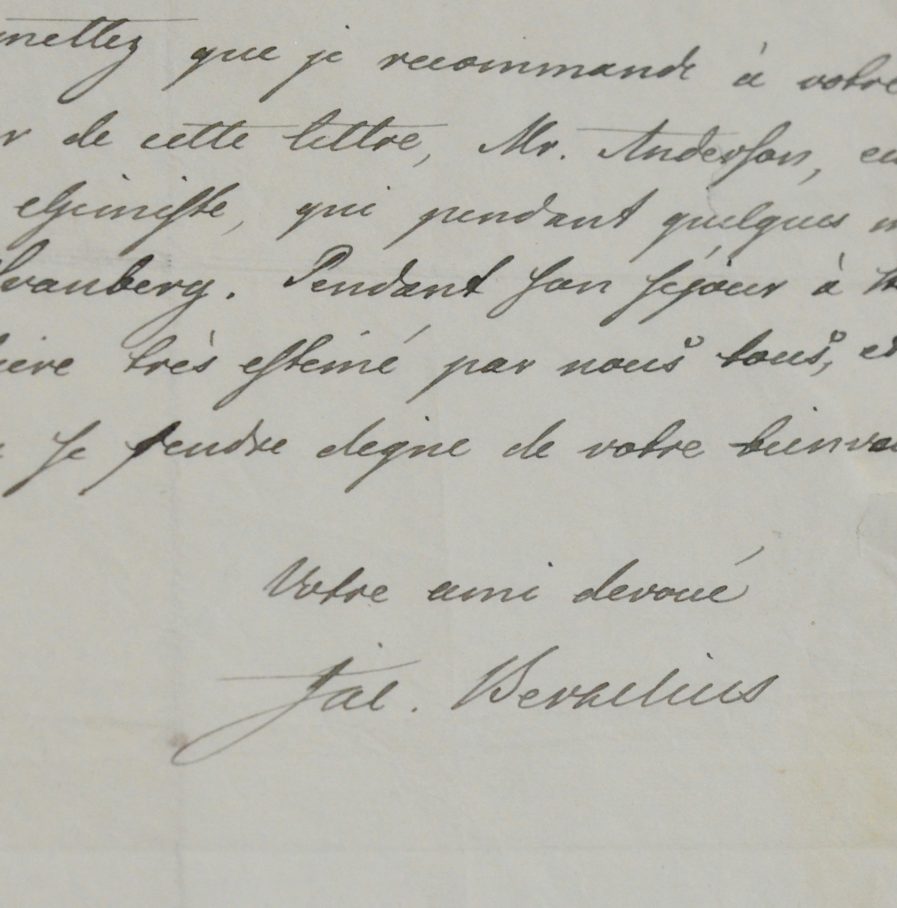 mettez que je recommande à votre
r de cette lettre, Mr. Anderson,
chimiste, qui pendant quelques
Svanberg. Pendant son séjour à
ière très estimé par nous tous, et
se rendre digne de votre bienve
Votre ami devoué
Jac. Berzelius